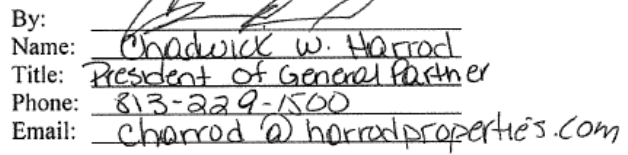 By:
Name: Chadwick W. Harrod
Title: President of General Partner
Phone: 813-229-1500
Email: charrod @ harrodproperties.com